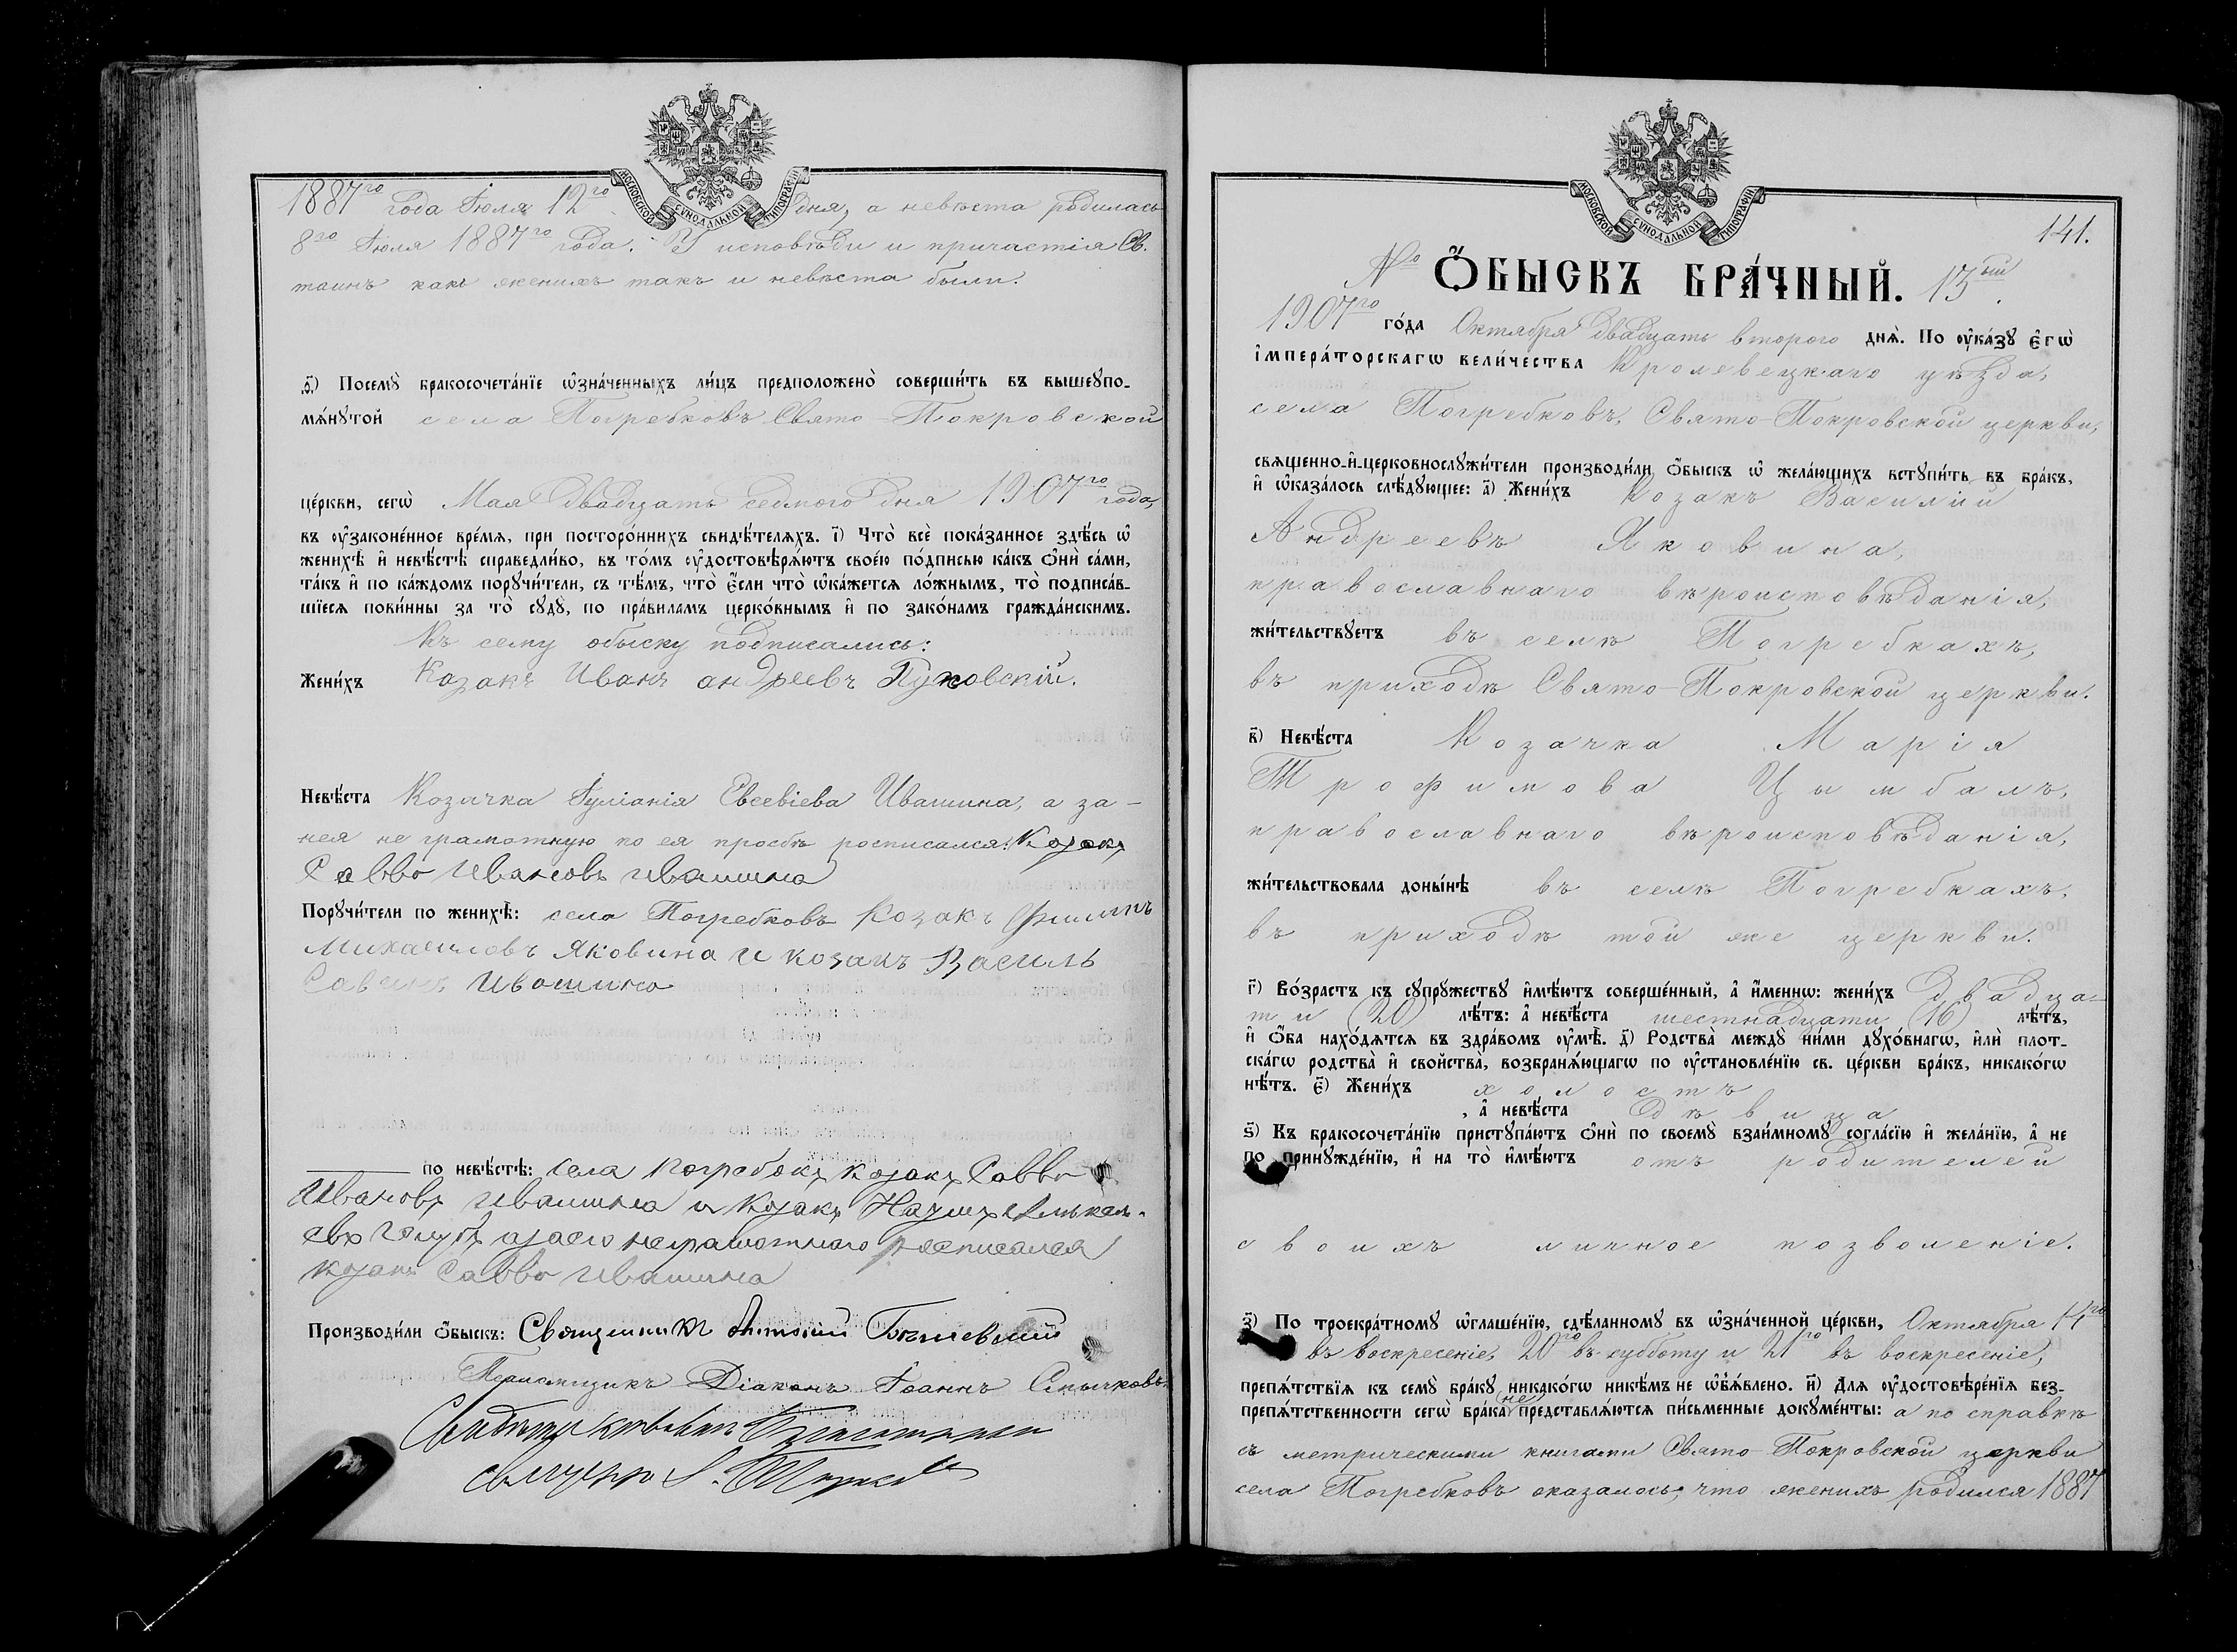 МОСКОВСКОЙ СѴНОДАЛЬНОЙ ТИПОГРАФІИ
1887го года Іюля 12го дня, а невѣста родилась
8го Іюля 1887го года. У исповѣди и причастія Св.
таинъ какъ женихъ такъ и невѣста были.
Посемꙋ̀ бракосочета́нїе ѡ҆зна́ченныхъ ли́цъ предположено̀ соверши́ть въ вышеꙋпо-
мѧ́нꙋтой села Погребковъ Свято-Покровской
це́ркви, сегѡ̀ Мая двадцать седмого дня 1907го года,
въ ᲂу҆законе́нное вре́мя, при посторо́ннихъ свидѣ́телѧхъ. і҃) Что̀ всѐ пока́занное здѣ́сь ѡ҆
женихѣ̀ и҆ невѣ́стѣ справедли́во, въ то́мъ ᲂу҆достовѣрѧ́ютъ свое́ю по́дписью ка́къ ѻ҆нѝ са́ми,
та́къ и҆ по ка́ждомъ порꙋчи́тели, съ тѣ́мъ, что̀ є҆́сли что̀ ѡ҆ка́жетсѧ ло́жнымъ, то̀ подписа́в-
шїесѧ пови́нны за то̀ сꙋдꙋ̀, по пра́виламъ церко́внымъ и҆ по зако́намъ гражда́нскимъ.
Къ сему обыску подписались:
Жени́хъ Казакъ Иванъ андреевъ Пуховскій.
Невѣ́ста Козачка Іуліанія Евсевіева Ивашина, а за-
нея не грамотную по ея просьбѣ росписался: Козакъ
Савво Ивановъ Ивашина
Порꙋчи́тели по женихѣ̀: села Погребковъ Козакъ Филипъ
Михаиловъ Яковина и козакъ Василь
Ивошина
по невѣ́стѣ: села погребокъ козакъ Савво
Ивановъ Ивашина и Козакъ Наумъ
неграмотного росписался
козакъ Савво Ивашина
Производи́ли ѻ҆́быскъ: Священникъ Антоній
Псаломщикъ Діаконъ Іоаннъ
МОСКОВСКОЙ СѴНОДАЛЬНОЙ ТИПОГРАФІИ
141.
No Ѻ҆́БЫСКЪ БРА́ЧНЫЙ. 13ый.
1907го го́да Октября двадцать второго днѧ̀. По ᲂу҆ка́зꙋ є҆гѡ̀
і҆мпера́торскагѡ вели́чества Кролевецкаго уѣзда,
села Погребковъ, Свято-Покровской церкви,
свѧщенно-и҆-церковнослꙋжи́тели производи́ли ѻ҆́быскъ ѡ҆ жела́ющихъ встꙋпи́ть въ бра́къ,
и҆ ѡ҆каза́лось слѣ́дꙋющее: а҃) Жени́хъ Козакъ Василій
Андреевъ Яковина,
православнаго вѣроисповѣданія,
жи́тельствꙋетъ въ селѣ Погребкахъ,
въ приходѣ Свято-Покровской церкви.
в҃) Невѣ́ста Козачка Марія
Трофимова Цымбалъ,
православнаго вѣроисповѣданія,
жи́тельствовала доны́нѣ въ селѣ Погребкахъ,
въ приходѣ той же церкви.
г҃) Во́зрастъ къ сꙋпрꙋ́жествꙋ и҆мѣ́ютъ соверше́нный, а҆ и҆́меннѡ: жени́хъ двадца-
ти (20) лѣ́тъ: а҆ невѣ́ста шестнадцати (16) лѣ́тъ,
и҆ ѻ҆́ба нахо́дѧтсѧ въ здра́вомъ ᲂу҆мѣ̀. д҃) Родства̀ междꙋ ни́ми дꙋхо́внагѡ, и҆лѝ плот-
ска́гѡ родства̀ и҆ свойства̀, возбранѧ́ющагѡ по ᲂу҆становле́нїю св. це́ркви бра́къ, никако́гѡ
нѣ́тъ. є҃) Жени́хъ холостъ
, а҆ невѣ́ста дѣвица
ѕ҃) Къ бракосочета́нїю пристꙋпа́ютъ ѻ҆нѝ по своемꙋ̀ взаи́мномꙋ согла́сїю и҆ жела́нїю, а҆ не
по принꙋжде́нїю, и҆ на то̀ и҆мѣ́ютъ отъ родителей
своихъ личное позволеніе.
з҃) По троекра́тномꙋ ѡ҆глаше́нїю, сдѣ́ланномꙋ въ ѡ҆зна́ченной це́ркви, Октября 14го
въ воскресеніе, 20го въ субботу и 21го въ воскресеніе,
препѧ́тствїѧ къ семꙋ̀ бра́кꙋ никако́гѡ никѣ́мъ не ѡ҆б̾ѧ́влено. и҃) Для ᲂу҆достовѣре́нїя без-
препѧ́тственности сегѡ̀ бра́ка не представлѧ́ются пи́сьменные докꙋме́нты: а по справкѣ
съ метрическими книгами Свято-Покровской церкви
села Погребковъ оказалось, что женихъ родился 1887